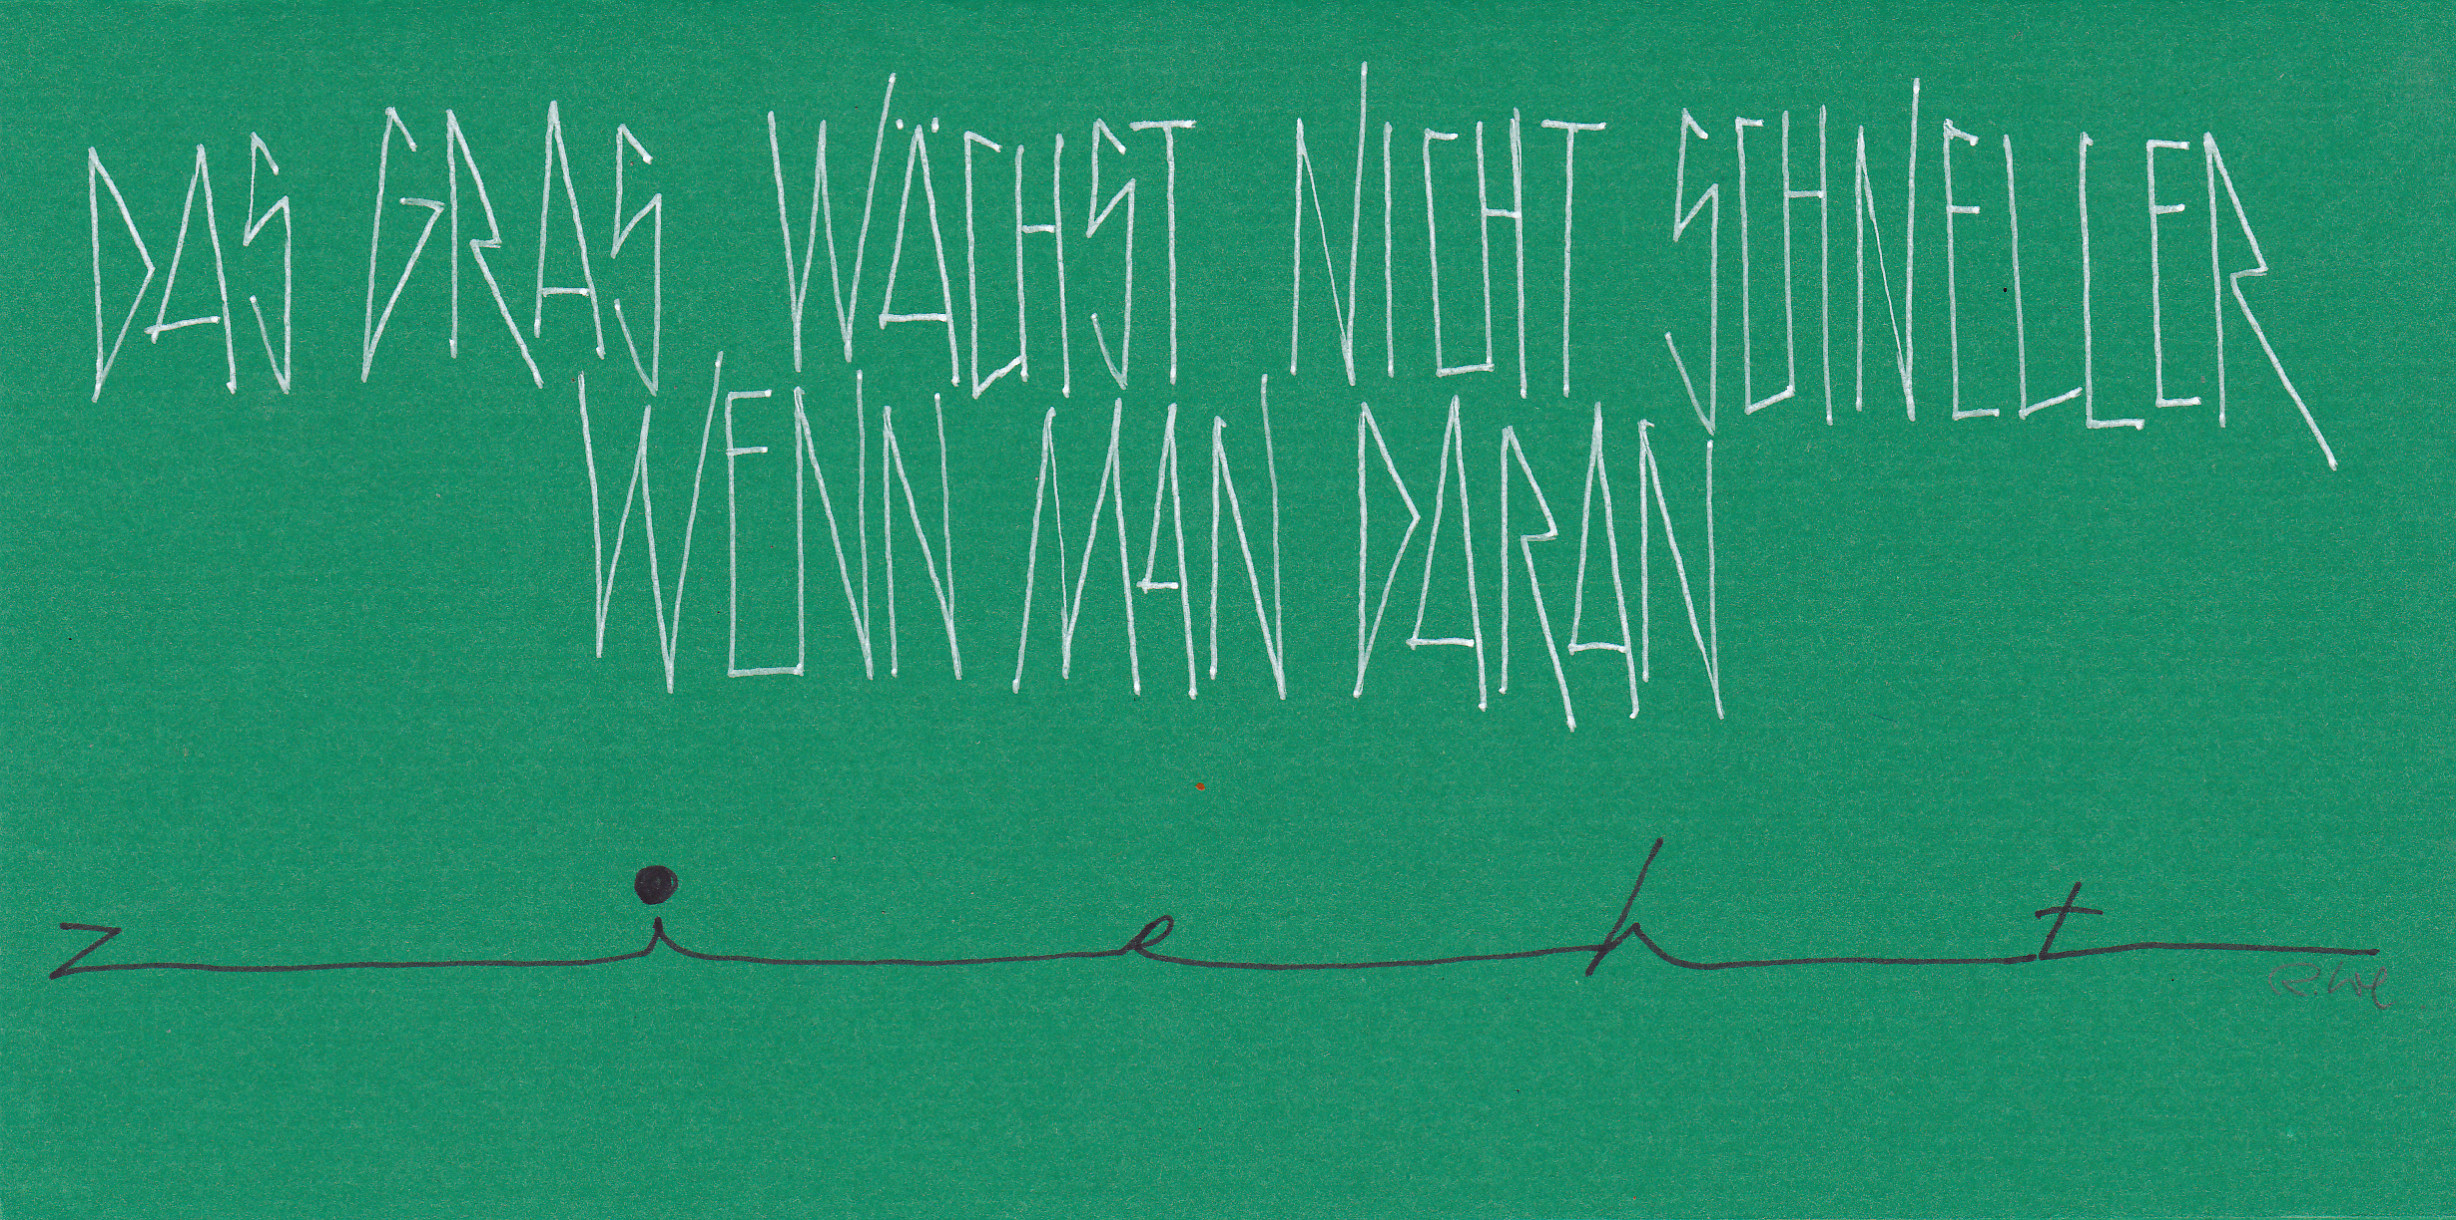 DAS GRAS WÄCHST NICHT SCHNELLER
WENN MAN DARAN
zieht